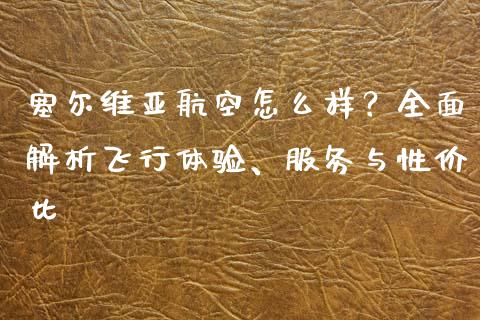 塞尔维亚航空怎么样？全面
解析飞行体验、服务与性价
比